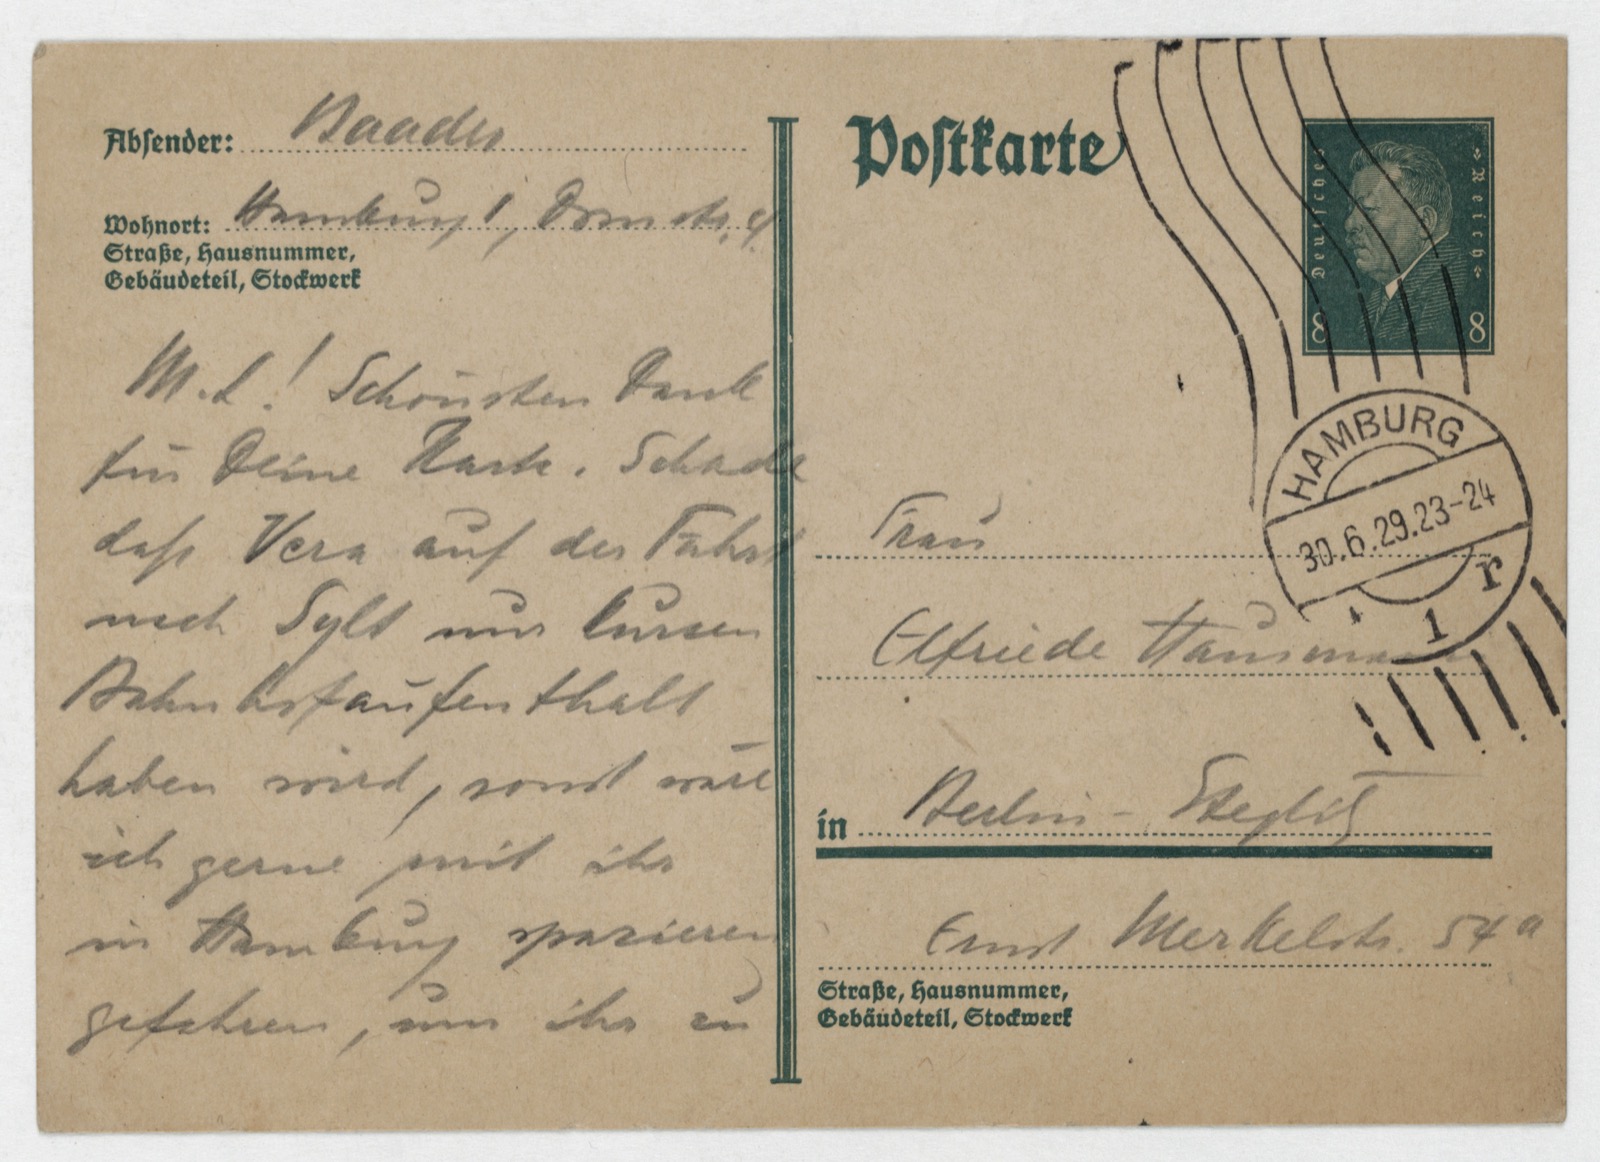 Absender: Baader
Wohnort: Hamburg 1, Domstr. 9
Straße, Hausnummer,
Gebäudeteil, Stockwerk
M. L! Schönsten Dank
für Deine Karte. Schade
daß Vera auf der Fahrt
nach Sylt nur kurzen
Bahnhofaufenthalt
haben wird, sonst wäre
ich gerne mit ihr
in Hamburg spazieren
gefahren, um ihr zu
Postkarte
Deutsches Reich
8 8
HAMBURG
30.6.29.23-24
1 r
Frau
Elfriede Hausmann
in Berlin-Steglitz
Ernst Merkelstr. 54a
Straße, Hausnummer,
Gebäudeteil, Stockwerk